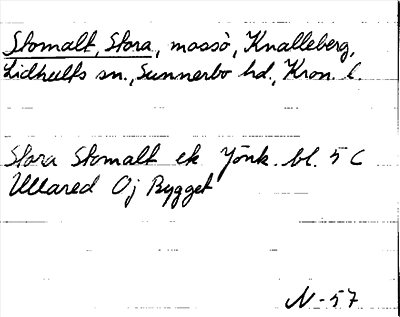 Stomalt, Stora, mosse, Knalleberg,
Lidhults sn., Sunnerbo hd., Kron. l.
Stora Stomalt ek. Jönk. bl. 5 C
Ullared Oj Bygget
N-57